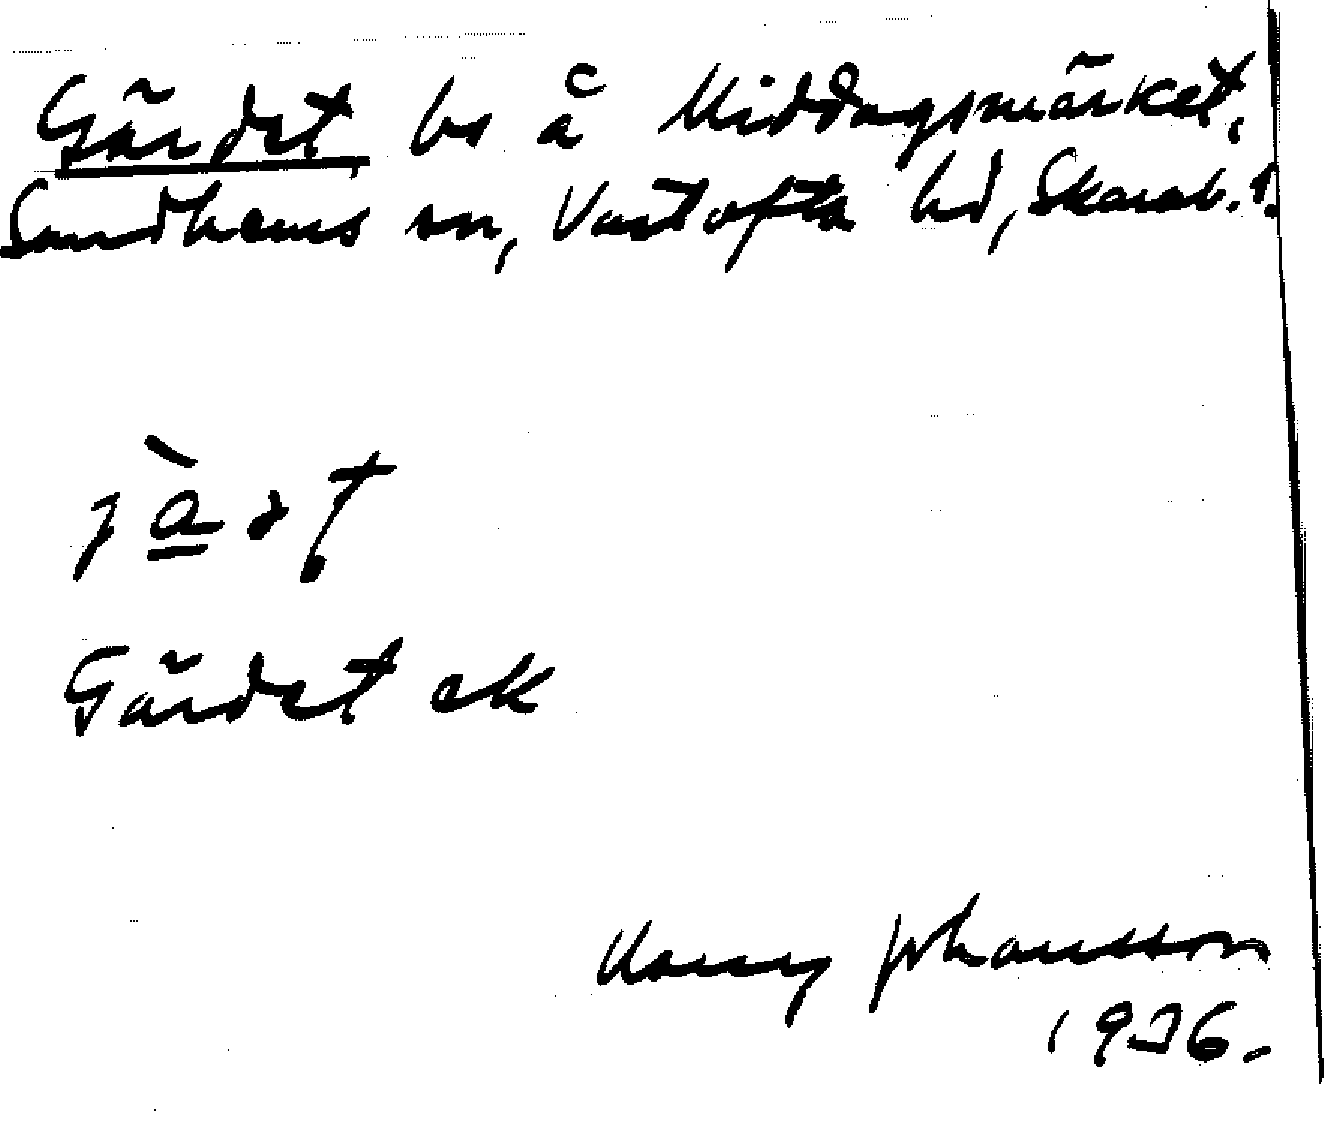 Gärdet bs å Middagsmärket,
Sandhems sn, Vartofta hd, Skarab. l.
Gärdet ek
Harry Johansson
1936.